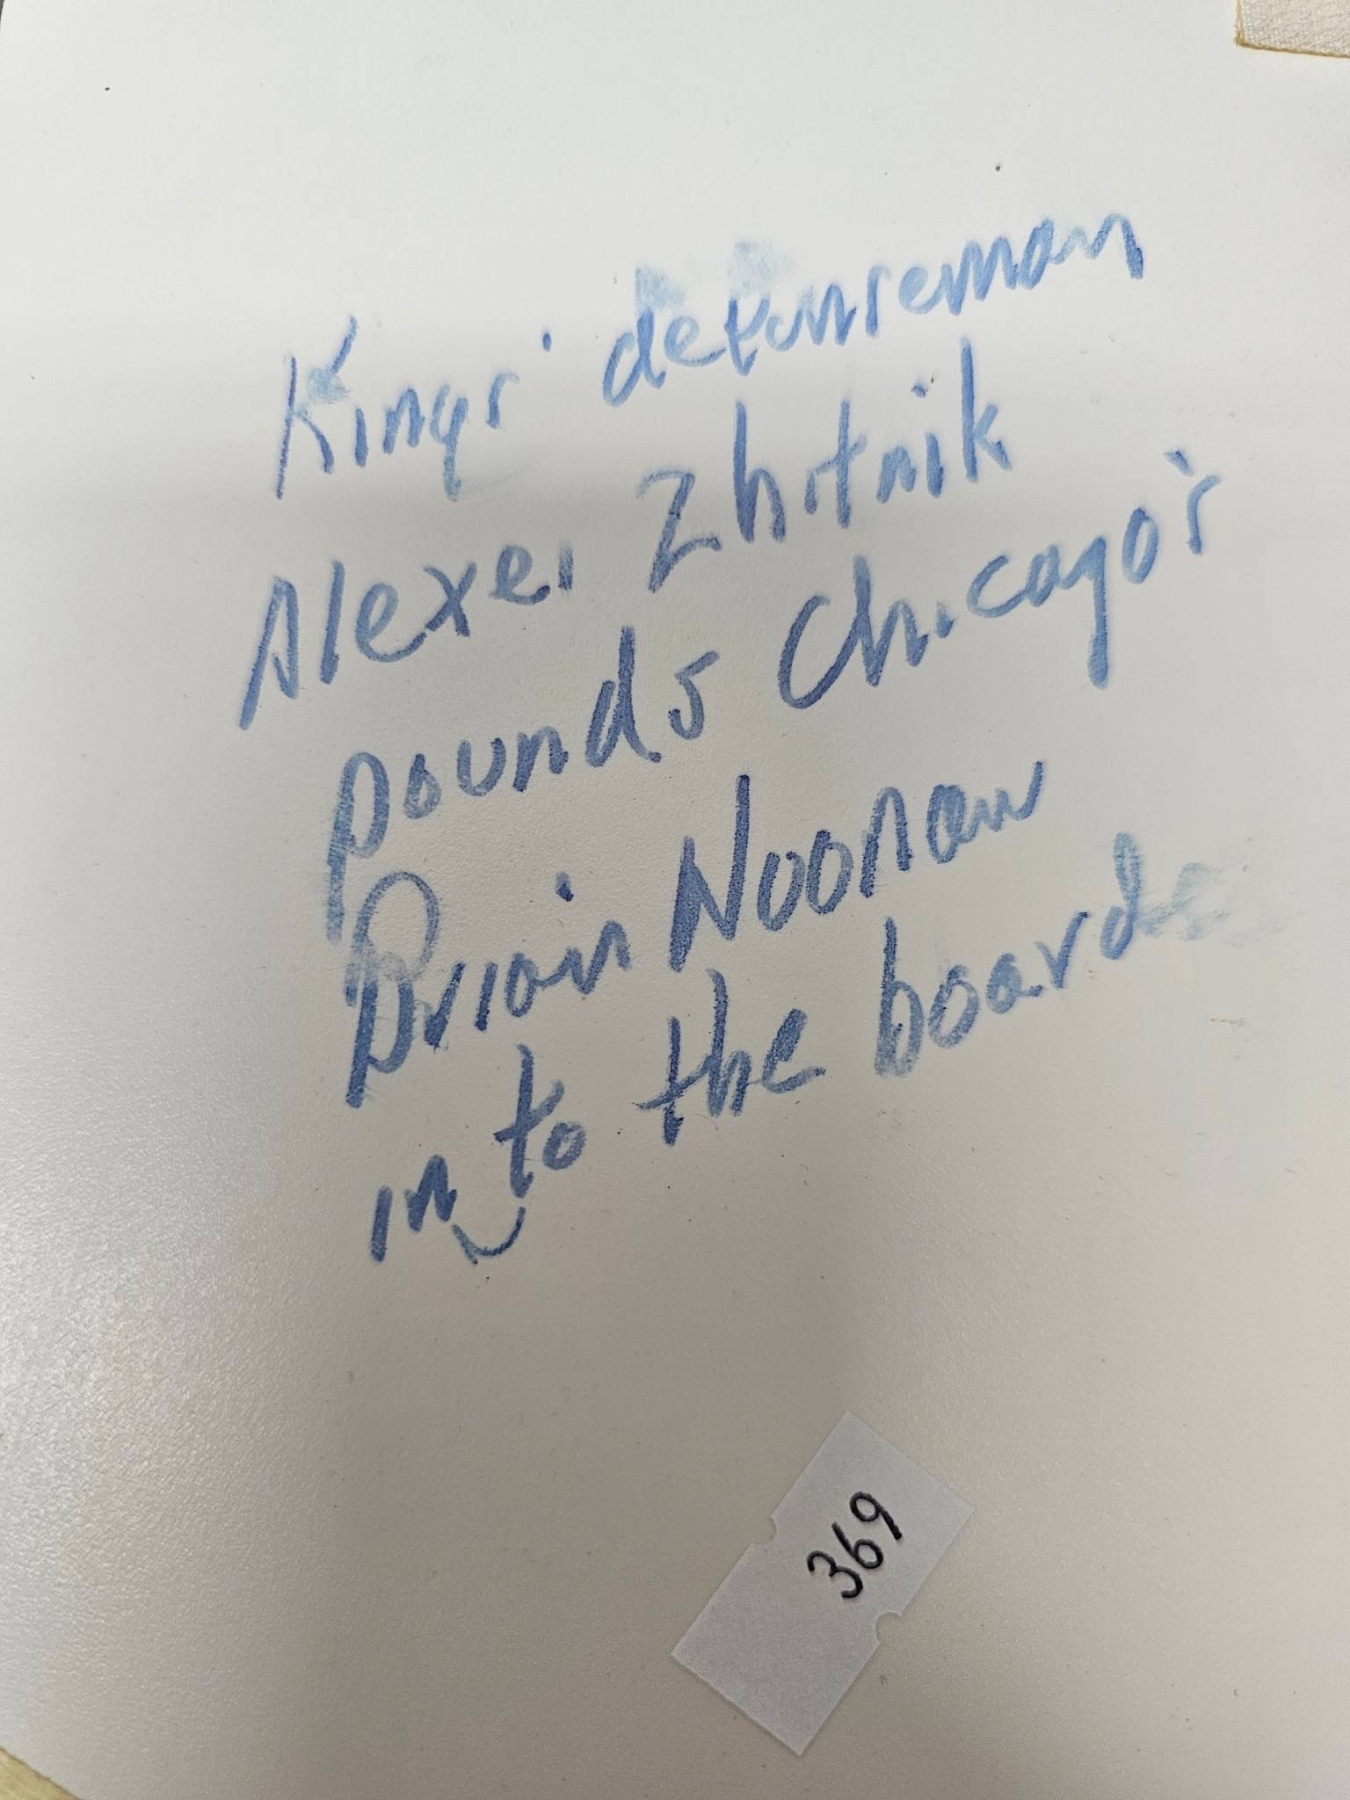 Kings' defenseman
Alexei Zhitnik
pounds Chicago's
Brian Noonan
into the boards
369